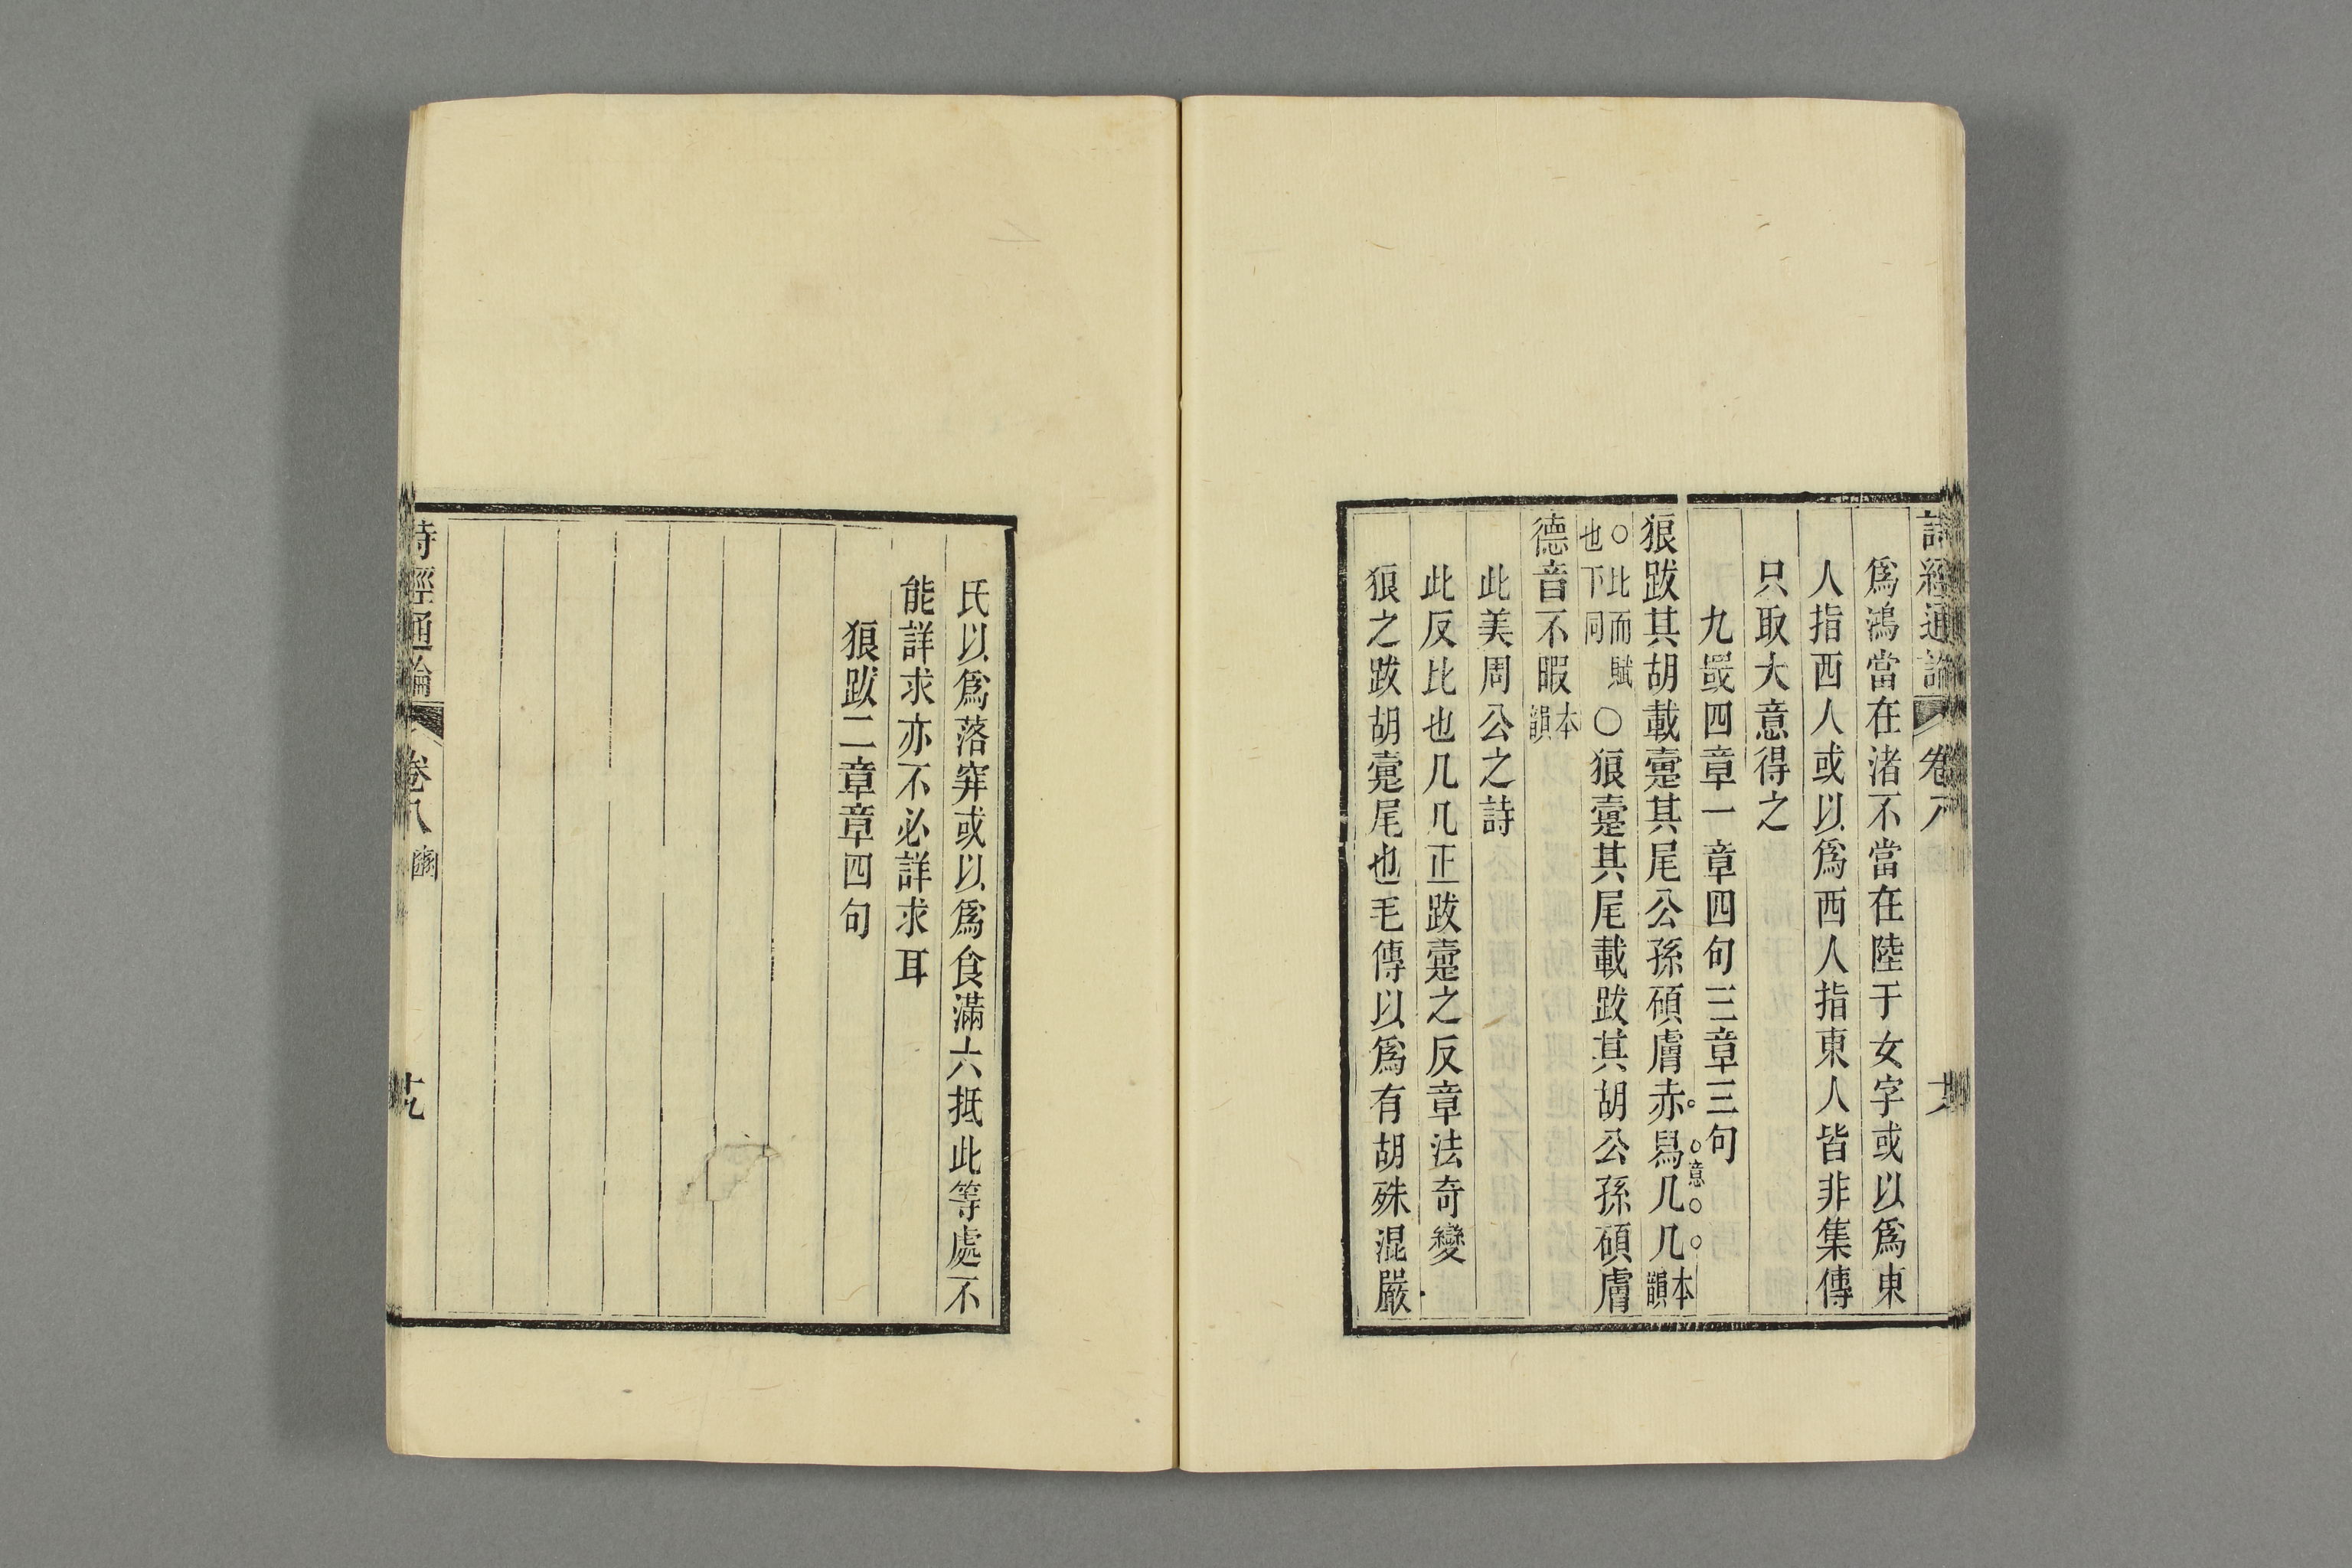 詩經通論 卷八
爲鴻當在渚不當在陸于女字或以爲東
人指西人或以爲西人指東人皆非集傳
只取大意得之
九罭四章一章四句三章三句
狼跋其胡載疐其尾公孫碩膚赤舄几几本韻
意
○此而賦也下同○狼疐其尾載跋其胡公孫碩膚
德音不瑕本韻
此美周公之詩
此反比也几几正跋疐之反章法奇變
狼之跋胡疐尾也毛傳以爲有胡殊混嚴
氏以爲落穽或以爲食滿六抵此等處不
能詳求亦不必詳求耳
狼跋二章章四句
詩經通論 卷八 豳